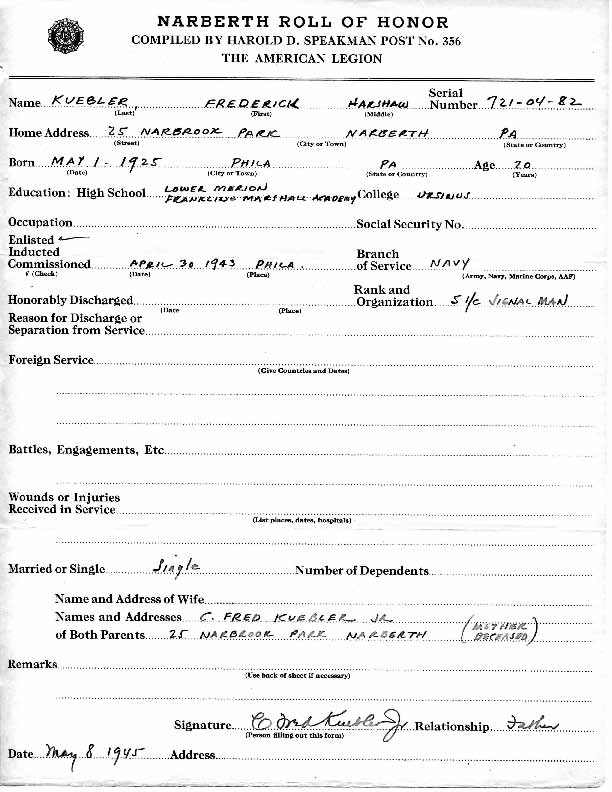 NARBERTH ROLL OF HONOR
COMPILED BY HAROLD D. SPEAKMAN POST No. 356
THE AMERICAN LEGION
Name KUEBLER, FREDERICK HARSHAW Serial Number 721-04-82
(Last) (First) (Middle)
Home Address 25 NARBROOK PARK NARBERTH PA
(Street) (City or Town) (State or Country)
Born MAY 1 - 1925 PHILA PA Age 20
(Date) (City or Town) (State or Country) (Years)
Education: High School LOWER MERION
FRANKLIN & MARSHALL ACADEMY College URSINUS
Occupation Social Security No.
Enlisted ✓
Inducted
Commissioned APRIL 30 1943 PHILA. Branch of Service NAVY
√ (Check) (Date) (Place) (Army, Navy, Marine Corps, AAF)
Honorably Discharged Rank and Organization S 1/C SIGNAL MAN
(Date (Place)
Reason for Discharge or
Separation from Service
Foreign Service
(Give Countries and Dates)
Battles, Engagements, Etc.
Wounds or Injuries
Received in Service
(List places, dates, hospitals)
Married or Single Single Number of Dependents
Name and Address of Wife
Names and Addresses C. FRED KUEBLER JR (MOTHER
of Both Parents 25 NARBROOK PARK NARBERTH DECEASED)
Remarks
(Use back of sheet if necessary)
Signature C Fred Kuebler Jr Relationship Father
(Person filling out this form)
Date May 8 1945 Address